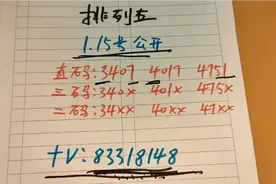 排列五
1.15号公开
直码:3407 4017 4751
三码:340x 401x 475x
二码:34xx 40xx 47xx
十V:83318148